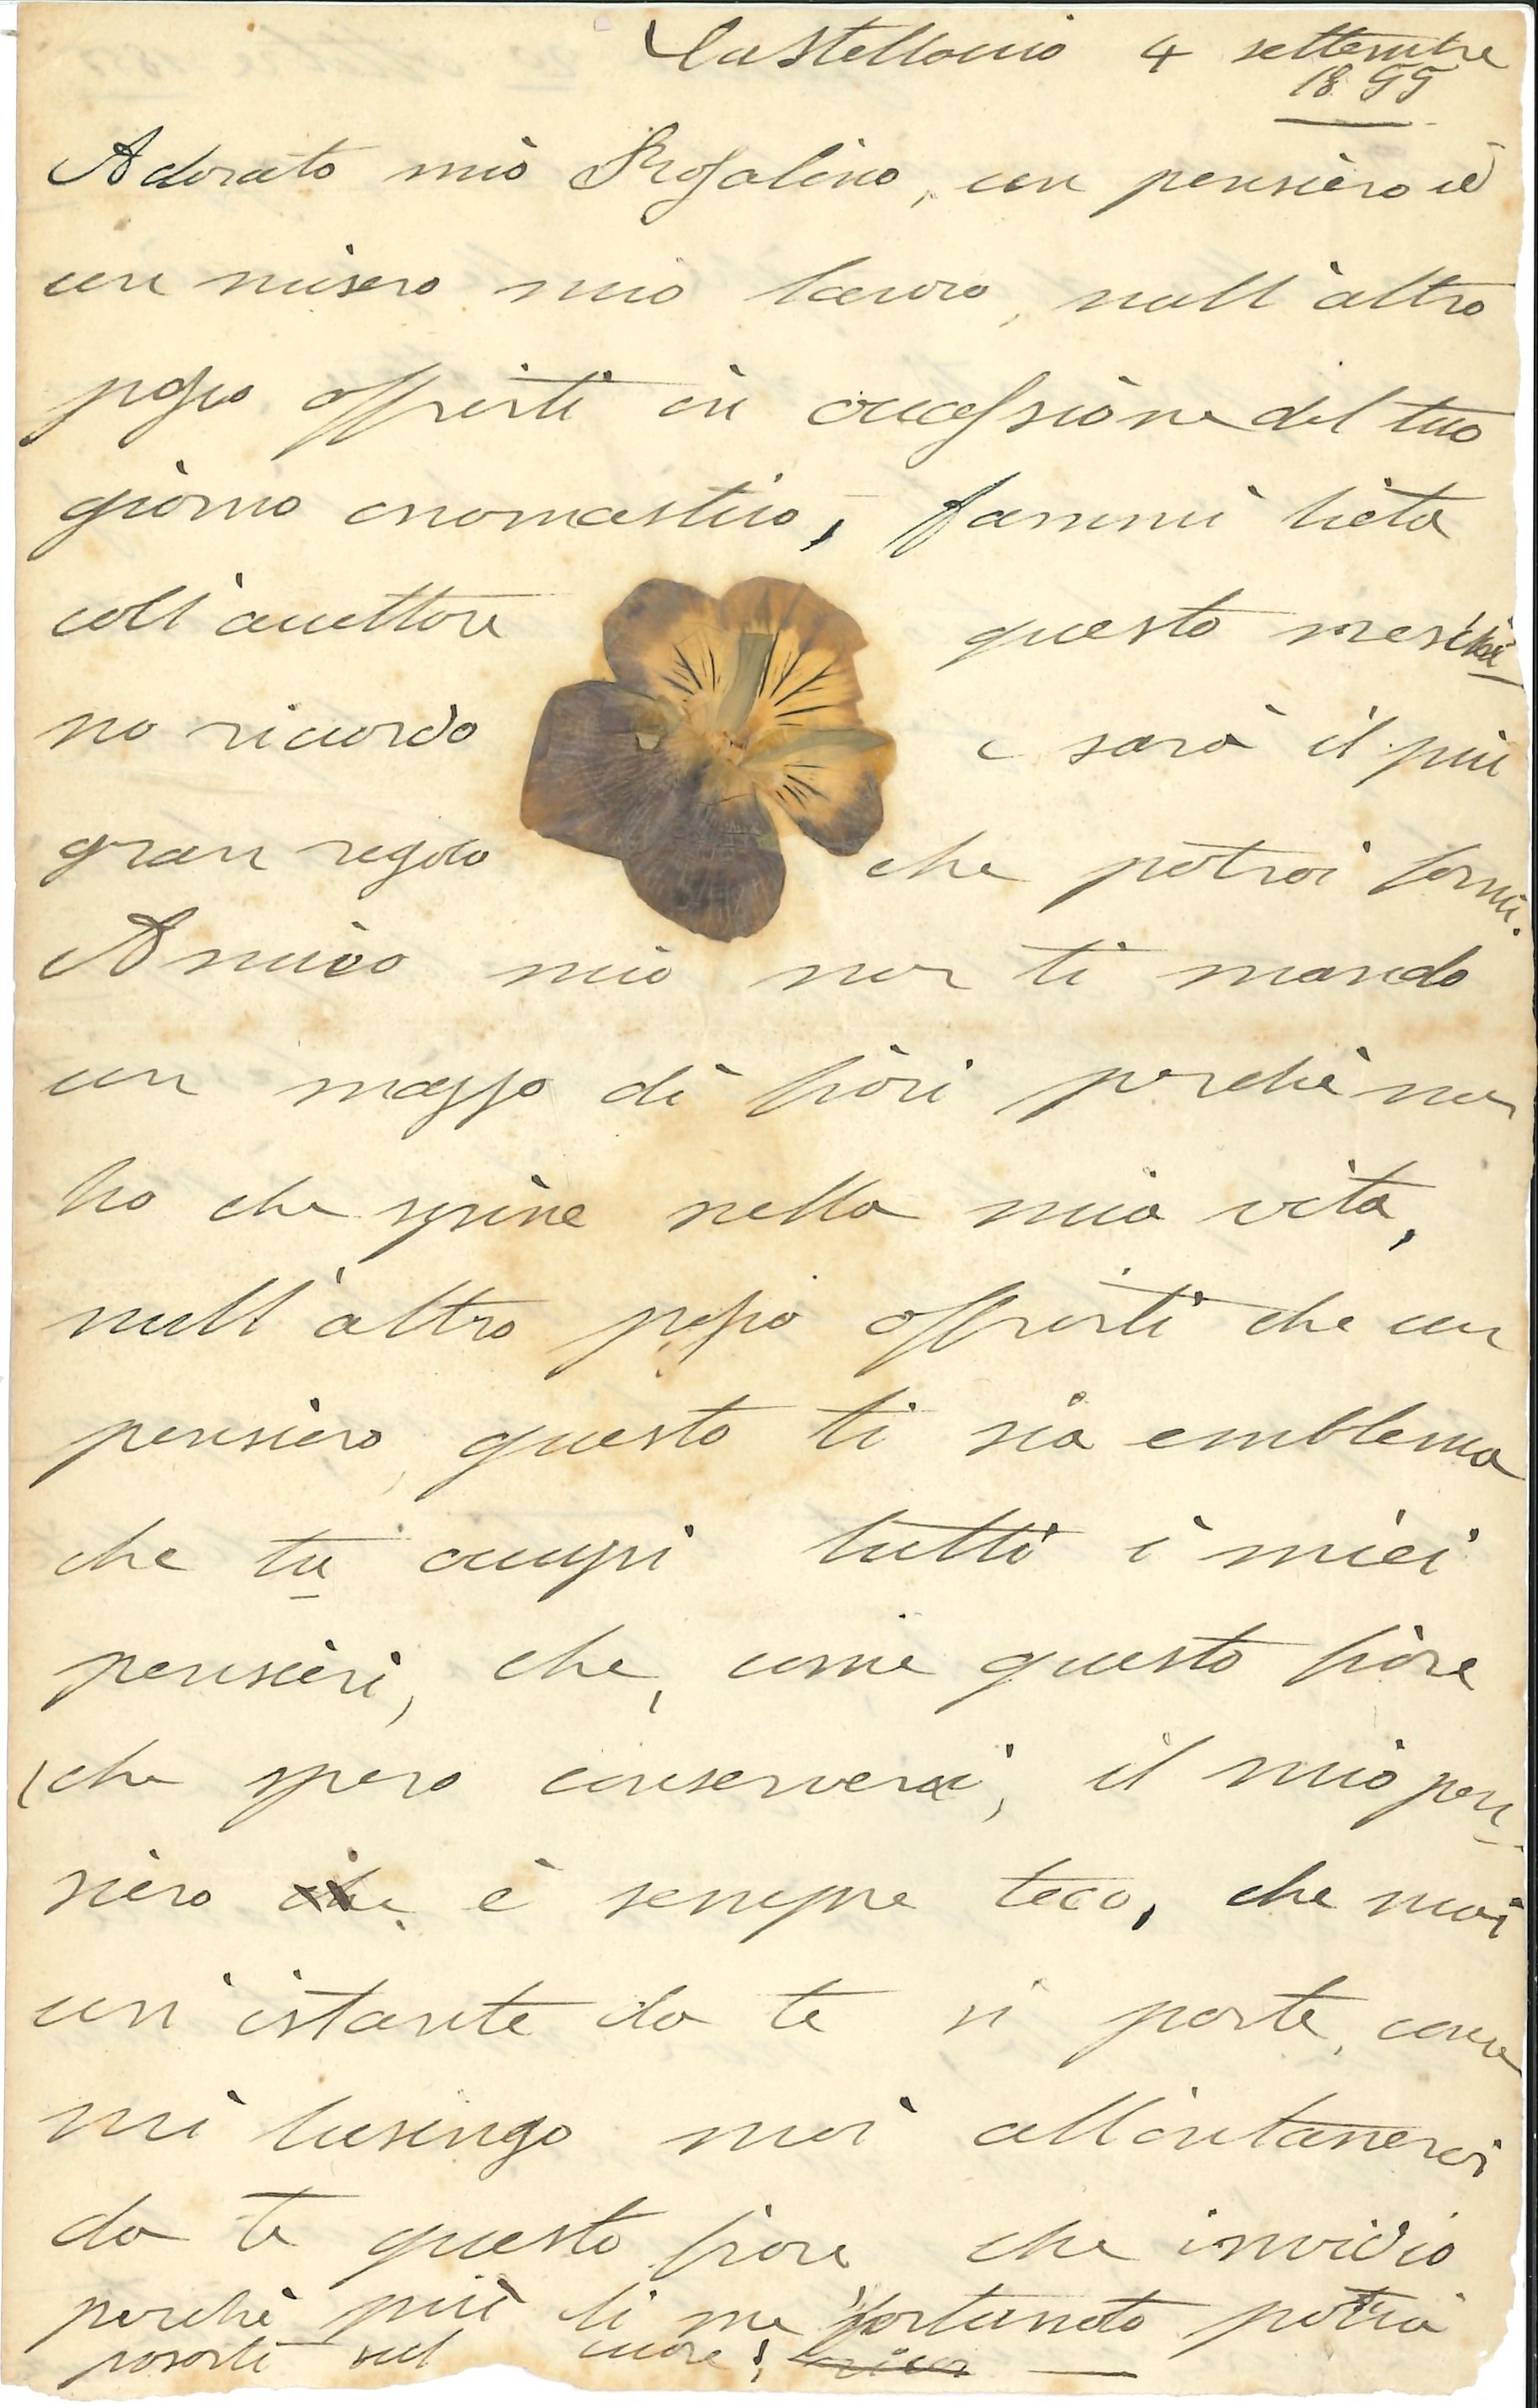 Castellonio 4 settembre
1899
Adorato mio Rosalino, un pensiero ed
un misero mio lavoro, null'altro
posso offrirti in occassione del tuo
giorno onomastico, fammi lieta
coll'accettare questo meschi
no ricordo e sarà il più
gran regalo che potrai farmi.
Amico mio non ti mando
un mazzo di fiori perchè non
ho che spine nella mia vita,
null'altro posso offrirti che un
pensiero, questo ti sia emblema
che tu occupi tutti i miei
pensieri, che, come questo fiore
(che spero conserverai, il mio pen
siero che è sempre teco, che mai
un'istante da te si parte, come
mi lusingo mai allontanerai
da te questo fiore che invidio
perchè più di me fortunato potrà
posarti sul cuore!